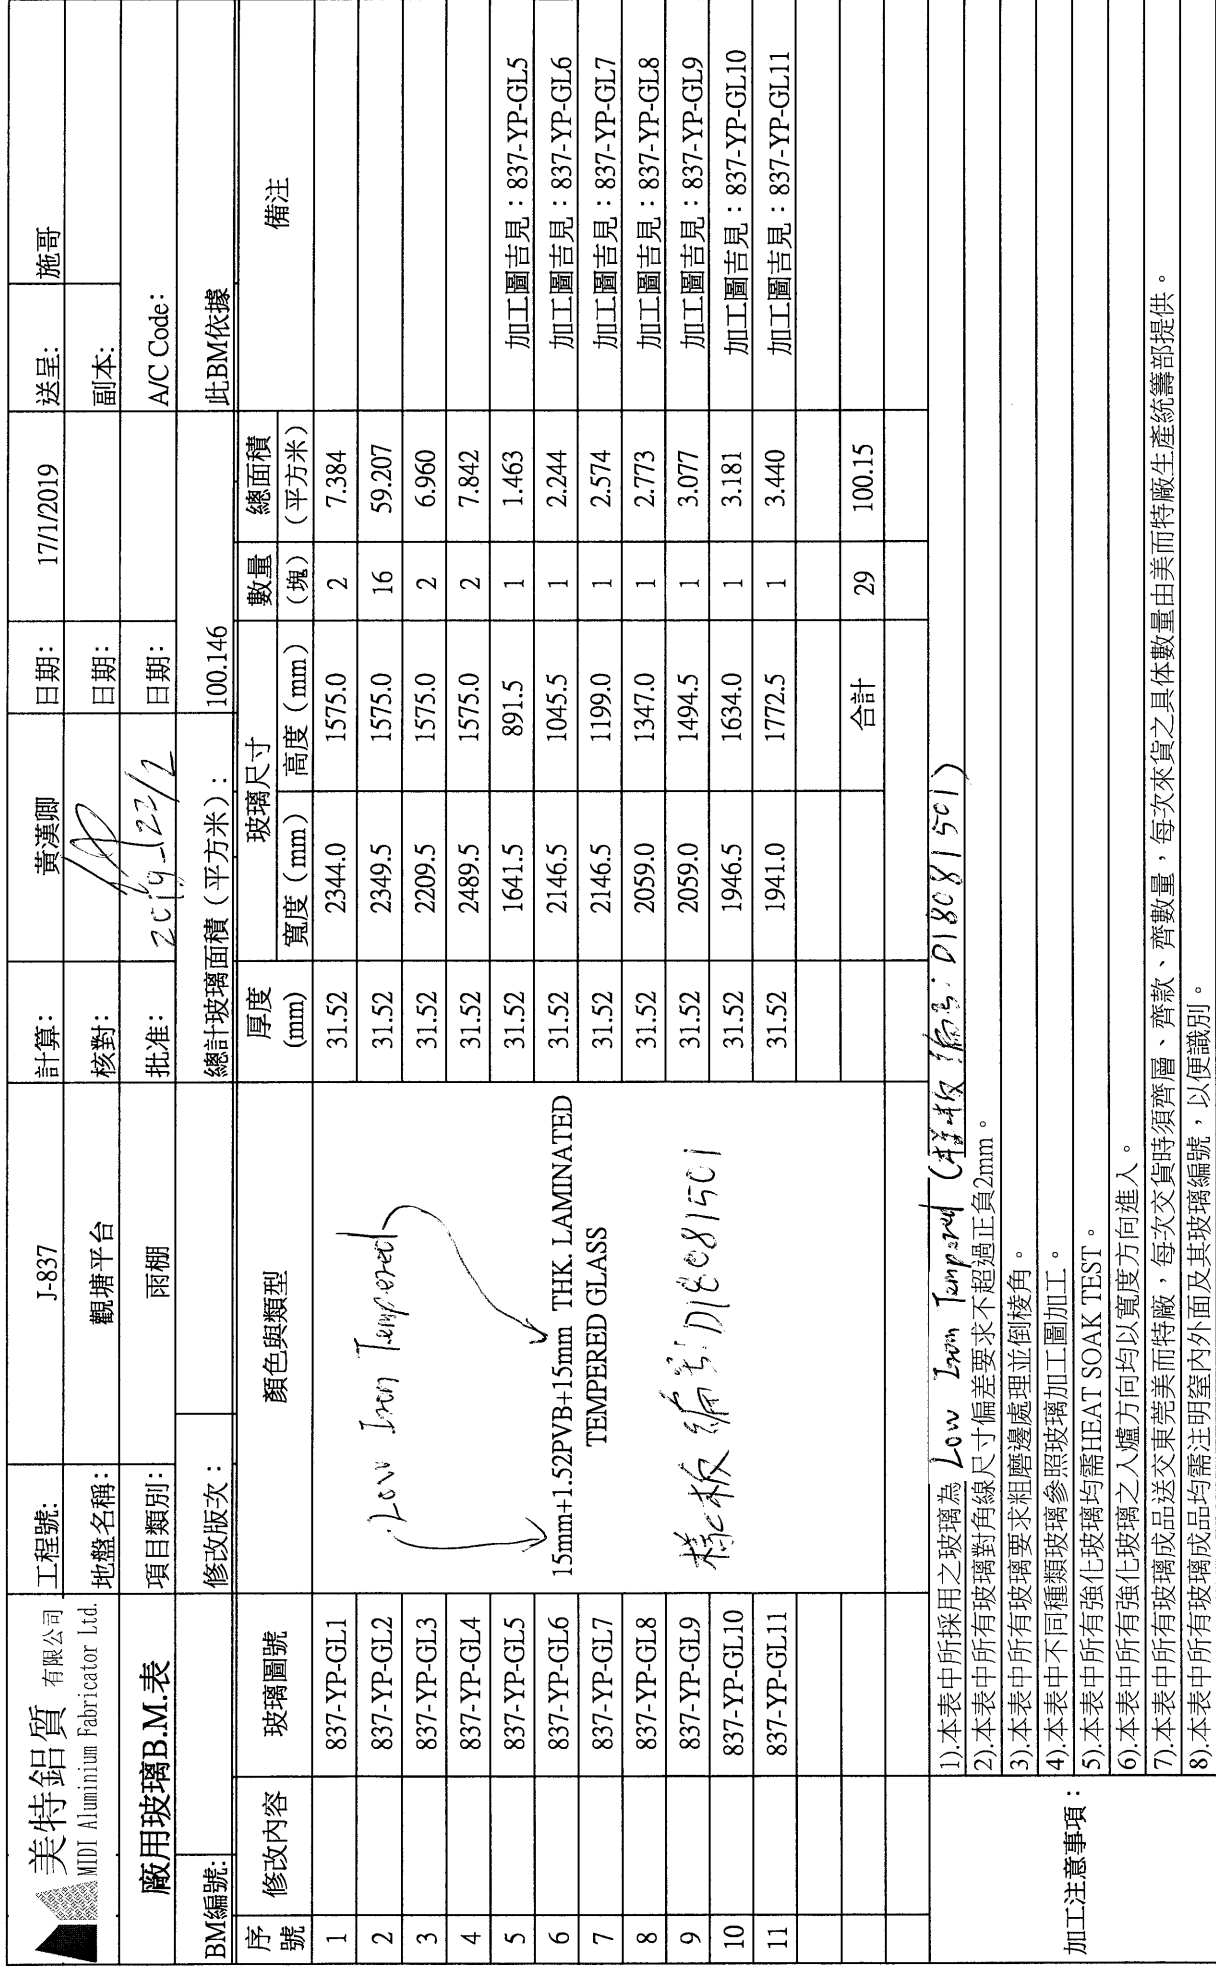 美特鋁質 有限公司
MIDI Aluminium Fabricator Ltd.
工程號: J-837 計算: 黃漢卿 日期: 17/1/2019 送呈: 施哥
地盤名稱: 觀塘平台 核對: 日期: 副本:
廠用玻璃B.M.表 項目類別: 雨棚 批准: 2019_22/2 日期: A/C Code:
BM編號: 修改版次: 總計玻璃面積(平方米): 100.146 此BM依據
序號 修改內容 玻璃圖號 顏色與類型 厚度(mm) 玻璃尺寸 數量(塊) 總面積(平方米) 備注
寬度(mm) 高度(mm)
1 837-YP-GL1 31.52 2344.0 1575.0 2 7.384
2 837-YP-GL2 31.52 2349.5 1575.0 16 59.207
3 837-YP-GL3 31.52 2209.5 1575.0 2 6.960
4 837-YP-GL4 31.52 2489.5 1575.0 2 7.842
5 837-YP-GL5 31.52 1641.5 891.5 1 1.463 加工圖吉見:837-YP-GL5
6 837-YP-GL6 31.52 2146.5 1045.5 1 2.244 加工圖吉見:837-YP-GL6
7 837-YP-GL7 31.52 2146.5 1199.0 1 2.574 加工圖吉見:837-YP-GL7
8 837-YP-GL8 31.52 2059.0 1347.0 1 2.773 加工圖吉見:837-YP-GL8
9 837-YP-GL9 31.52 2059.0 1494.5 1 3.077 加工圖吉見:837-YP-GL9
10 837-YP-GL10 31.52 1946.5 1634.0 1 3.181 加工圖吉見:837-YP-GL10
11 837-YP-GL11 31.52 1941.0 1772.5 1 3.440 加工圖吉見:837-YP-GL11
Low Iron Tempered
15mm+1.52PVB+15mm THK. LAMINATED
TEMPERED GLASS
樣板編号:D18081501
合計 29 100.15
加工注意事項:
1).本表中所採用之玻璃為 Low Iron Tempered (樣板編号:D18081501)
2).本表中所有玻璃對角線尺寸偏差要求不超過正負2mm。
3).本表中所有玻璃要求粗磨邊處理並倒棱角。
4).本表中不同種類玻璃參照玻璃加工圖加工。
5).本表中所有強化玻璃均需HEAT SOAK TEST。
6).本表中所有強化玻璃之入爐方向均以寬度方向進入。
7).本表中所有玻璃成品送交東莞美而特廠,每次交貨時須齊層、齊款、齊數量,每次來貨之具体數量由美而特廠生產統籌部提供。
8).本表中所有玻璃成品均需注明室內外面及其玻璃編號,以便識別。